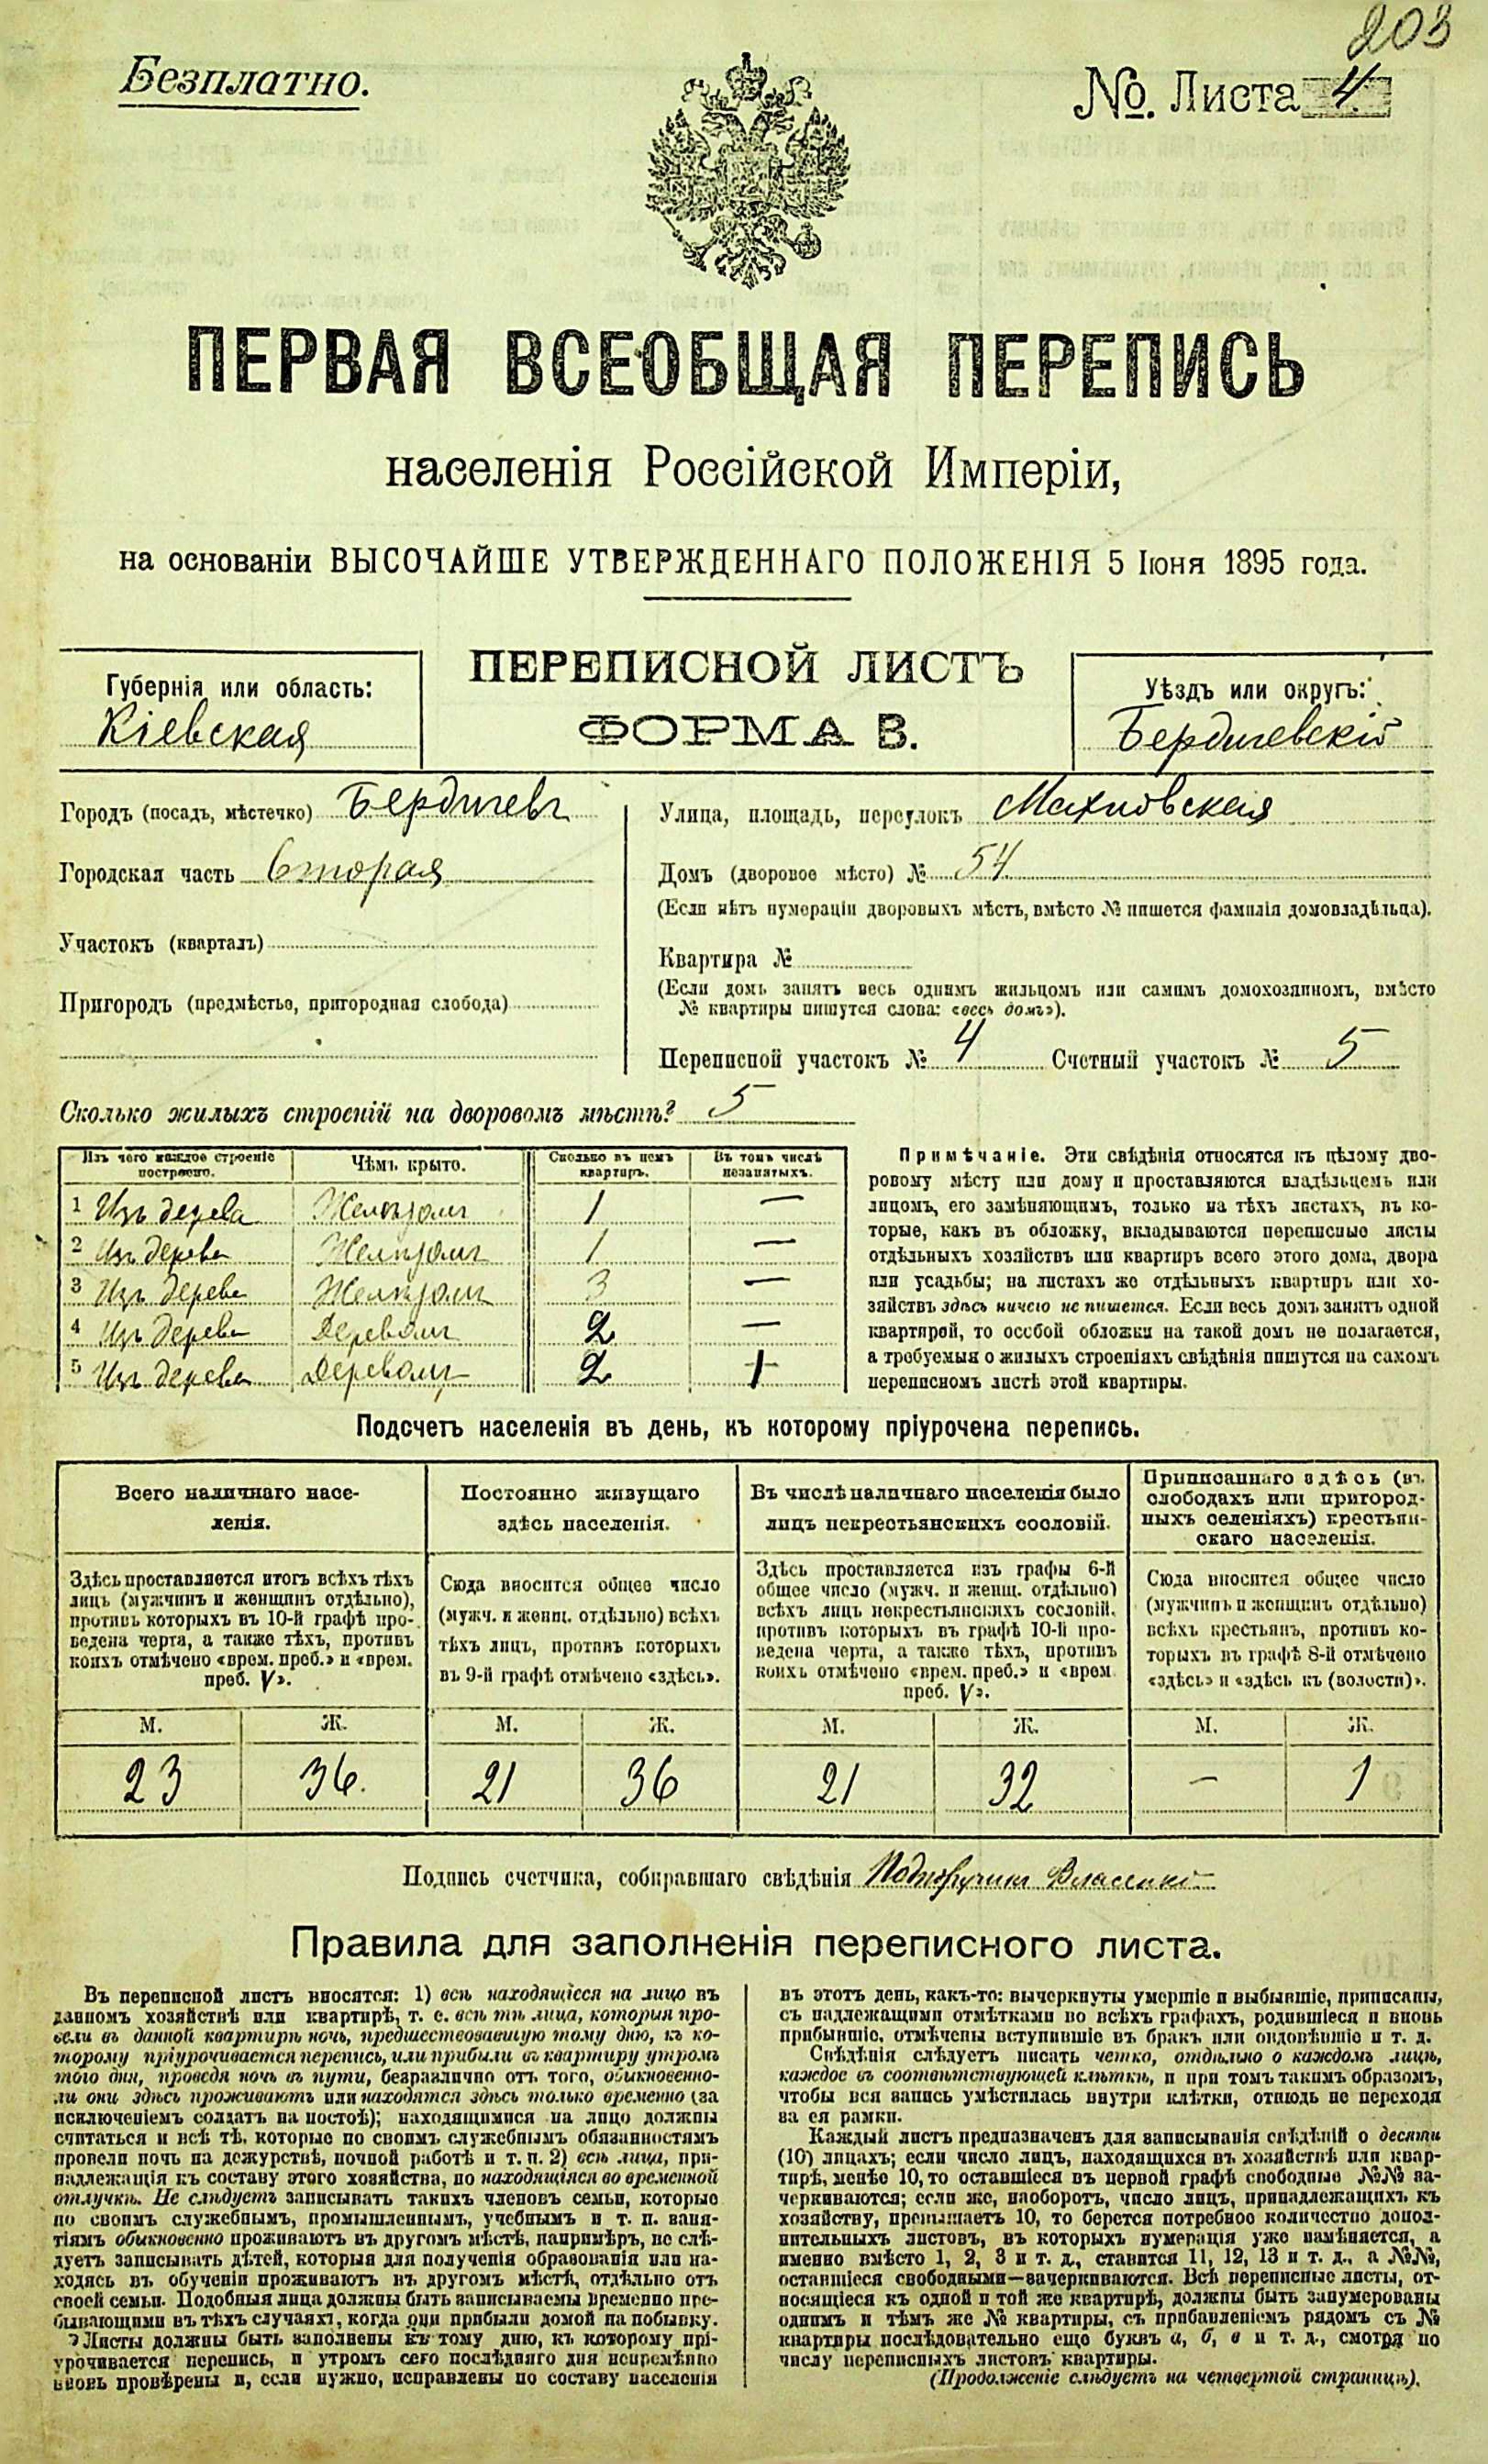 203
Безплатно.
№. Листа 4
ПЕРВАЯ ВСЕОБЩАЯ ПЕРЕПИСЬ
населенія Россійской Имперіи,
на основаніи ВЫСОЧАЙШЕ УТВЕРЖДЕННАГО ПОЛОЖЕНІЯ 5 Іюня 1895 года.
ПЕРЕПИСНОЙ ЛИСТЪ
ФОРМА В.
Губернія или область:
Кіевская
Уѣздъ или округъ:
Бердичевскій
Городъ (посадъ, мѣстечко) Бердичевъ
Городская часть вторая
Участокъ (кварталъ)
Пригородъ (предмѣстье, пригородная слобода)
Улица, площадь, переулокъ Махновская
Домъ (дворовое мѣсто) № 54
(Если нѣтъ нумераціи дворовыхъ мѣстъ, вмѣсто № пишется фамилія домовладѣльца).
Квартира №
(Если домъ занятъ весь однимъ жильцомъ или самимъ домохозяиномъ, вмѣсто
№ квартиры пишутся слова: «весь домъ»).
Переписной участокъ № 4 Счетный участокъ № 5
Сколько жилыхъ строеній на дворовомъ мѣстѣ? 5
Изъ чего каждое строеніе построено. Чѣмъ крыто. Сколько въ немъ квартиръ. Въ томъ числѣ незанятыхъ.
1 Изъ дерева Желѣзомъ 1 —
2 Изъ дерева Желѣзомъ 1 —
3 Изъ дерева Желѣзомъ 3 —
4 Изъ дерева Деревомъ 2 —
5 Изъ дерева Деревомъ 2 1
Примѣчаніе. Эти свѣдѣнія относятся къ цѣлому дво-
ровому мѣсту или дому и проставляются владѣльцемъ или
лицомъ, его замѣняющимъ, только на тѣхъ листахъ, въ ко-
торые, какъ въ обложку, вкладываются переписные листы
отдѣльныхъ хозяйствъ или квартиръ всего этого дома, двора
или усадьбы; на листахъ же отдѣльныхъ квартиръ или хо-
зяйствъ здѣсь ничего не пишется. Если весь домъ занятъ одной
квартирой, то особой обложки на такой домъ не полагается,
а требуемыя о жилыхъ строеніяхъ свѣдѣнія пишутся на самомъ
переписномъ листѣ этой квартиры.
Подсчетъ населенія въ день, къ которому пріурочена перепись.
Всего наличнаго насе-
ленія.
Здѣсь проставляется итогъ всѣхъ тѣхъ
лицъ (мужчинъ и женщинъ отдѣльно),
противъ которыхъ въ 10-й графѣ про-
ведена черта, а также тѣхъ, противъ
коихъ отмѣчено «врем. преб.» и «врем.
преб. V».
М. Ж.
23 36.
Постоянно живущаго
здѣсь населенія.
Сюда вносится общее число
(мужч. и женщ. отдѣльно) всѣхъ
тѣхъ лицъ, противъ которыхъ
въ 9-й графѣ отмѣчено «здѣсь».
М. Ж.
21 36
Въ числѣ наличнаго населенія было
лицъ некрестьянскихъ сословій.
Здѣсь проставляется изъ графы 6-й
общее число (мужч. и женщ. отдѣльно)
всѣхъ лицъ некрестьянскихъ сословій,
противъ которыхъ въ графѣ 10-й про-
ведена черта, а также тѣхъ, противъ
коихъ отмѣчено «врем. преб.» и «врем.
преб. V».
М. Ж.
21 32
Приписаннаго здѣсь (въ
слободахъ или пригород-
ныхъ селеніяхъ) крестьян-
скаго населенія.
Сюда вносится общее число
(мужчинъ и женщинъ отдѣльно)
всѣхъ крестьянъ, противъ ко-
торыхъ въ графѣ 8-й отмѣчено
«здѣсь» и «здѣсь къ (волости)».
М. Ж.
— 1
Подпись счетчика, собиравшаго свѣдѣнія Подпоручикъ Власенко
Правила для заполненія переписного листа.
Въ переписной листъ вносятся: 1) всѣ находящіеся на лицо въ
данномъ хозяйствѣ или квартирѣ, т. е. всѣ тѣ лица, которыя про-
вели въ данной квартирѣ ночь, предшествовавшую тому дню, къ ко-
торому пріурочивается перепись, или прибыли въ квартиру утромъ
того дня, проведя ночь въ пути, безразлично отъ того, обыкновенно-
ли они здѣсь проживаютъ или находятся здѣсь только временно (за
исключеніемъ солдатъ на постоѣ); находящимися на лицо должны
считаться и всѣ тѣ, которые по своимъ служебнымъ обязанностямъ
провели ночь на дежурствѣ, ночной работѣ и т. п. 2) всѣ лица, при-
надлежащія къ составу этого хозяйства, но находящіяся во временной
отлучкѣ. Не слѣдуетъ записывать такихъ членовъ семьи, которые
по своимъ служебнымъ, промышленнымъ, учебнымъ и т. п. заня-
тіямъ обыкновенно проживаютъ въ другомъ мѣстѣ, напримѣръ, не слѣ-
дуетъ записывать дѣтей, которыя для полученія образованія или на-
ходясь въ обученіи проживаютъ въ другомъ мѣстѣ, отдѣльно отъ
своей семьи. Подобныя лица должны быть записываемы временно пре-
бывающими въ тѣхъ случаяхъ, когда они прибыли домой на побывку.
Листы должны быть заполнены къ тому дню, къ которому прі-
урочивается перепись, и утромъ сего послѣдняго дня непремѣнно
вновь провѣрены и, если нужно, исправлены по составу населенія
въ этотъ день, какъ-то: вычеркнуты умершіе и выбывшіе, приписаны,
съ надлежащими отмѣтками во всѣхъ графахъ, родившіеся и вновь
прибывшіе, отмѣчены вступившіе въ бракъ или овдовѣвшіе и т. д.
Свѣдѣнія слѣдуетъ писать четко, отдѣльно о каждомъ лицѣ,
каждое въ соотвѣтствующей клѣткѣ, и при томъ такимъ образомъ,
чтобы вся запись умѣстилась внутри клѣтки, отнюдь не переходя
за ея рамки.
Каждый листъ предназначенъ для записыванія свѣдѣній о десяти
(10) лицахъ; если число лицъ, находящихся въ хозяйствѣ или квар-
тирѣ, менѣе 10, то оставшіеся въ первой графѣ свободные №№ за-
черкиваются; если же, наоборотъ, число лицъ, принадлежащихъ къ
хозяйству, превышаетъ 10, то берется потребное количество допол-
нительныхъ листовъ, въ которыхъ нумерація уже измѣняется, а
именно вмѣсто 1, 2, 3 и т. д., ставится 11, 12, 13 и т. д., а №№,
оставшіеся свободными—зачеркиваются. Всѣ переписные листы, от-
носящіеся къ одной и той же квартирѣ, должны быть занумерованы
однимъ и тѣмъ же № квартиры, съ прибавленіемъ рядомъ съ №
квартиры послѣдовательно еще буквъ а, б, в и т. д., смотря по
числу переписныхъ листовъ квартиры.
(Продолженіе слѣдуетъ на четвертой страницѣ).